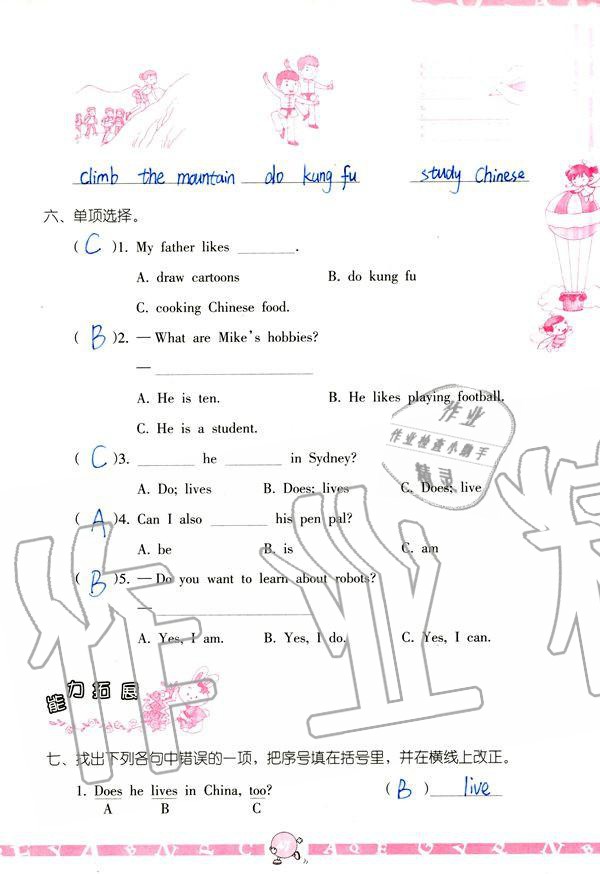 climb the mountain do kung fu study Chinese
六、单项选择。
( C )1. My father likes ________.
A. draw cartoons B. do kung fu
C. cooking Chinese food.
( B )2. — What are Mike's hobbies?
— ____________________
A. He is ten. B. He likes playing football.
C. He is a student.
( C )3. ________ he ________ in Sydney?
A. Do; lives B. Does; lives C. Does; live
( A )4. Can I also ________ his pen pal?
A. be B. is C. am
( B )5. — Do you want to learn about robots?
— ____________________
A. Yes, I am. B. Yes, I do. C. Yes, I can.
能力拓展
七、找出下列各句中错误的一项，把序号填在括号里，并在横线上改正。
1. Does he lives in China, too? ( B ) live
A B C
作业
作业检查小帮手
精灵
作业